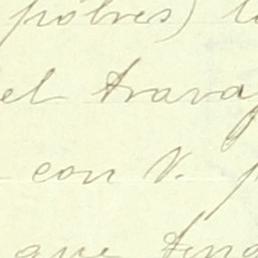 pobres) l
el trava
con V. p
que teng